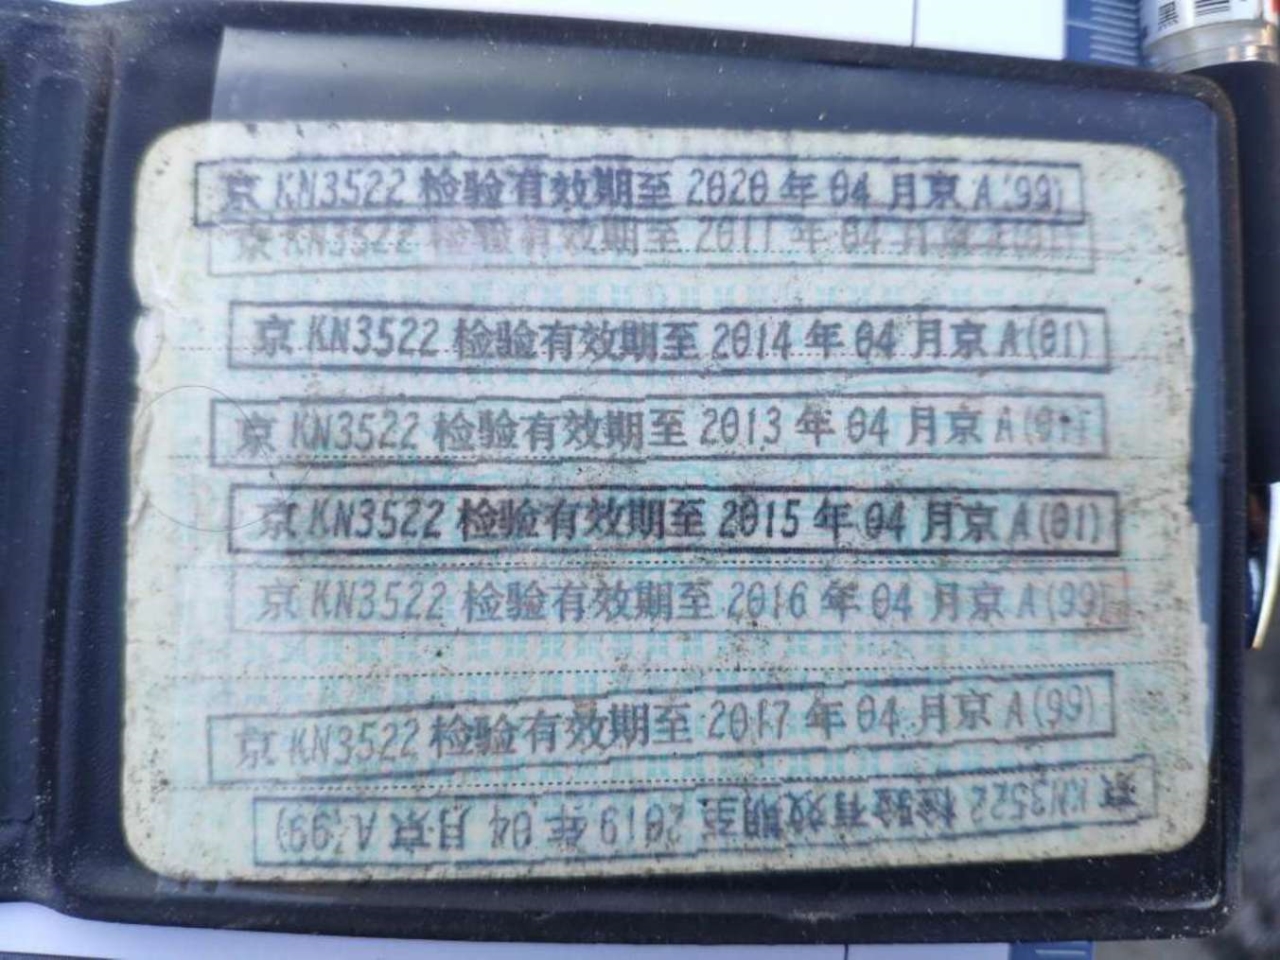 京 KN3522 检验有效期至 2020 年 04 月京 A(99)
京 KN3522 检验有效期至 2011 年 04 月京
京 KN3522 检验有效期至 2014 年 04 月京 A(01)
京 KN3522 检验有效期至 2013 年 04 月京 A(01)
京 KN3522 检验有效期至 2015 年 04 月京 A(01)
京 KN3522 检验有效期至 2016 年 04 月京 A(99)
京 KN3522 检验有效期至 2017 年 04 月京 A(99)
京 KN3522 检验有效期至 2019 年 04 月京 A(99)